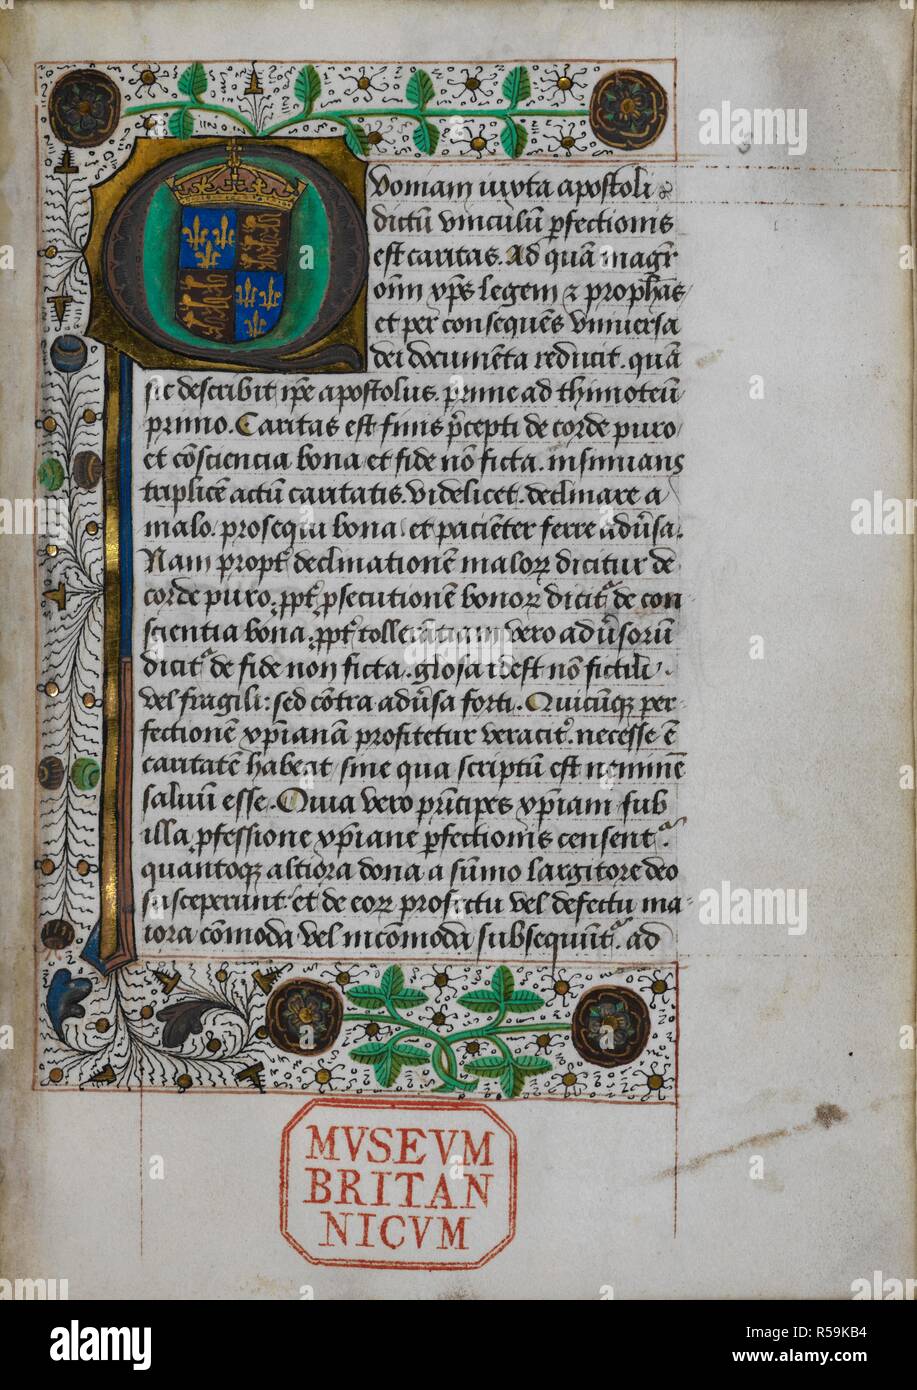 Quoniam iuxta apostoli
dictū vinculum ꝑfectionis
est caritas. Ad quā magr̄
om̄ xp̄s legem & proph̄as
et per consequēs vniuersa
dei documēta reducit. quā
sic describit ip̄e apostolus. prime ad thimoteū
primo. Caritas est finis p̄cepti de corde puro
et cōsciencia bona et fide nō ficta. insinuans
triplicē actū caritatis. videlicet. declinare a
malo. prosequi bona. et paciēter ferre aduͥsa.
Nam propt̄ declinationē maloꝝ dicitur de
corde puro. ꝓpt̄ ꝓsecutionē bonoꝝ dicit᷑ de con
scientia bona. ꝓpt̄ tolleratiam vero aduͥsorū
dicit᷑ de fide non ficta. glosa id est nō fictili.
vel fragili: sed cōtra aduͥsa forti. Quicūqꝫ per
fectionē xp̄ianā profitetur veracit᷑. necesse ē
caritatē habeat sine qua scriptū est neminē
saluū esse. Quia vero prīcipes xp̄iani sub
illa ꝓfessione xp̄iane ꝑfectionis censent᷑.
quantoqꝫ altiora dona a sūmo largitore deo
susceperunt et de eoꝝ profectu vel defectu ma
iora cōmoda vel incōmoda subsequūt᷑. ad
MVSEVM
BRITAN
NICVM
alamy
alamy
Image ID: R59KB4
www.alamy.com